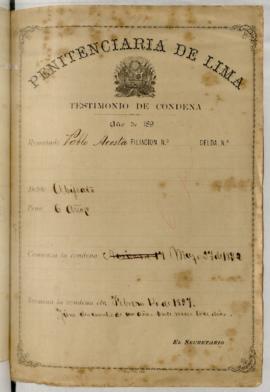 PENITENCIARIA DE LIMA
TESTIMONIO DE CONDENA
Año de 189
Rematado Pablo Acosta FILIACION N.º CELDA N.º
Delito
Pena 6 años
Comienza la condena Mayo 27 de 1892
Termina la condena en Febrero 14 de 1897.
de un año
EL SECRETARIO